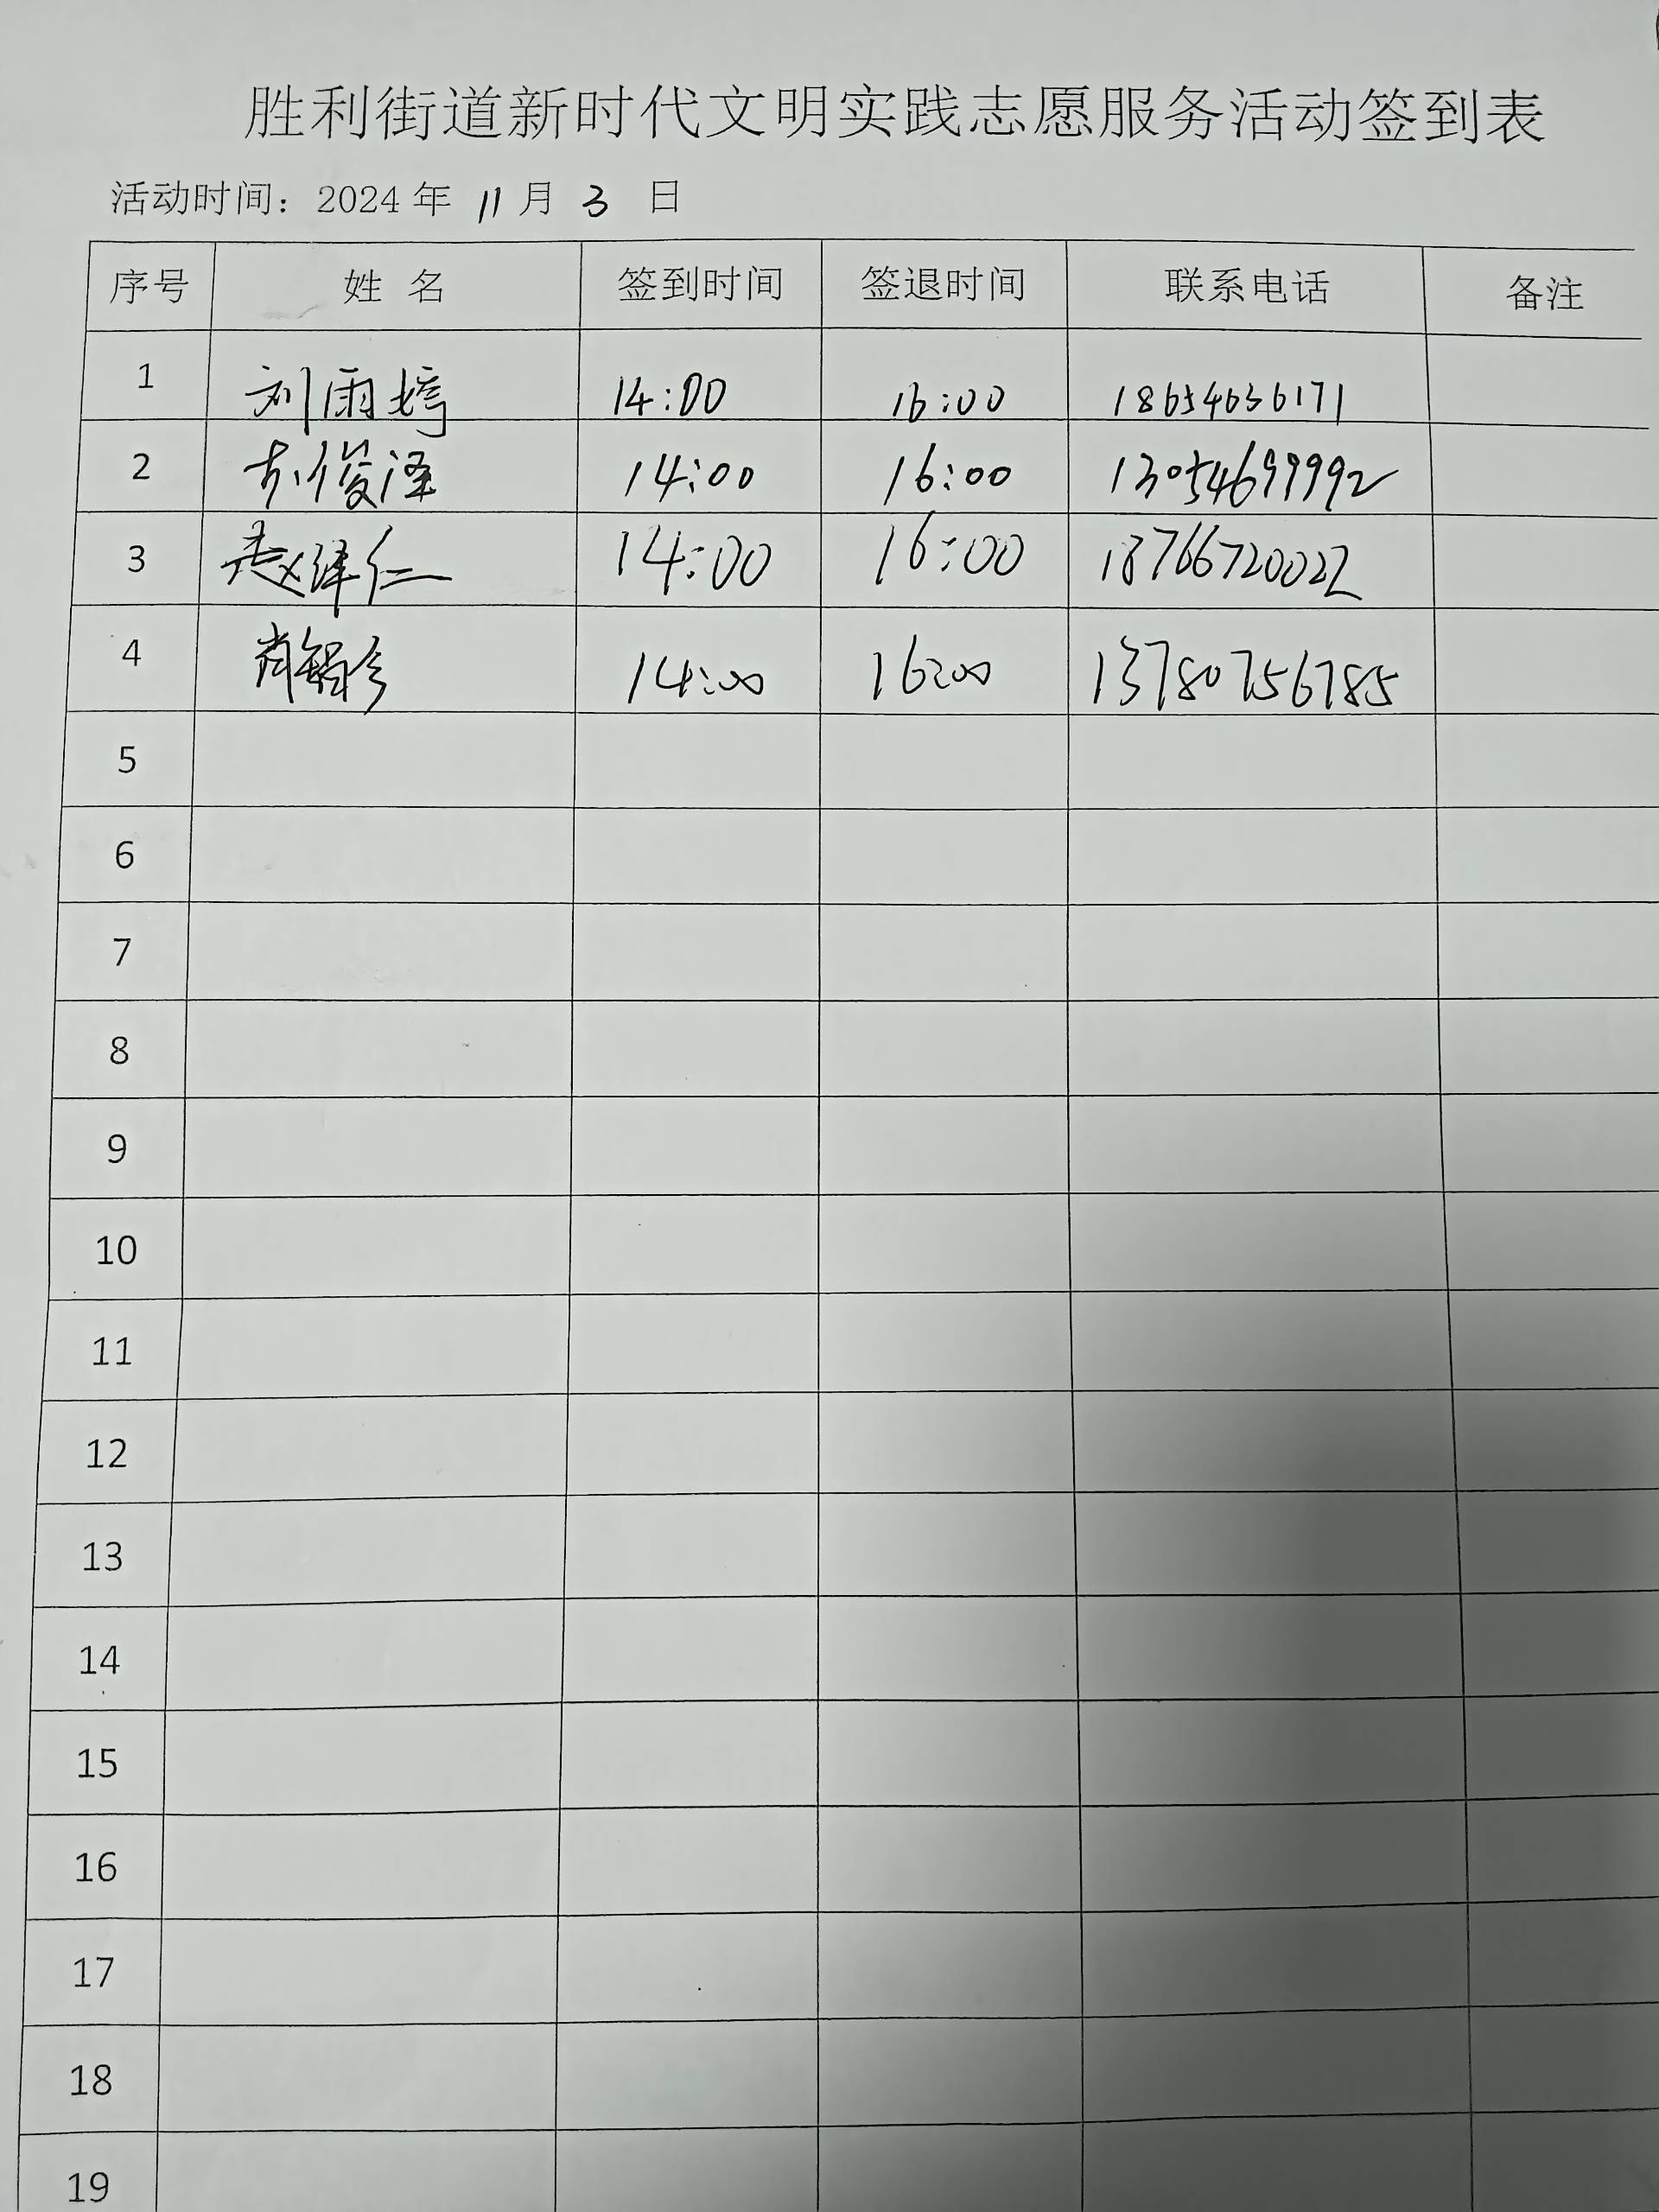 胜利街道新时代文明实践志愿服务活动签到表
活动时间：2024 年 11 月 3 日
序号 姓 名 签到时间 签退时间 联系电话 备注
1 刘雨婷 14:00 16:00 18654636171
2 俊泽 14:00 16:00 13054699992
3 赵泽仁 14:00 16:00 18766720022
4 肖 14:00 16:00 13780756785
5
6
7
8
9
10
11
12
13
14
15
16
17
18
19